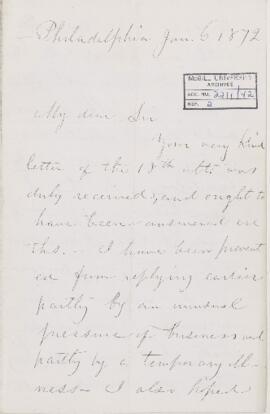 Philadelphia Jan. 6 1872
McGILL UNIVERSITY
ARCHIVES
ACC. NO.
REF.
My dear Sir
Your very kind
letter of the 18th ulto was
duly received, and ought to
have been answered ere
this. – I have been prevent
ed from replying earlier
partly by an unusual
pressure of business and
partly by a temporary ill-
ness – I also hoped